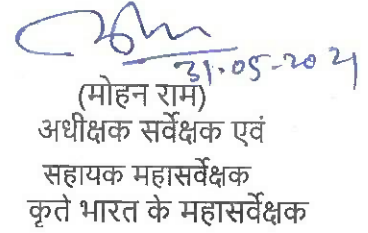 31-05-2021
(मोहन राम)
अधीक्षक सर्वेक्षक एवं
सहायक महासर्वेक्षक
कृते भारत के महासर्वेक्षक